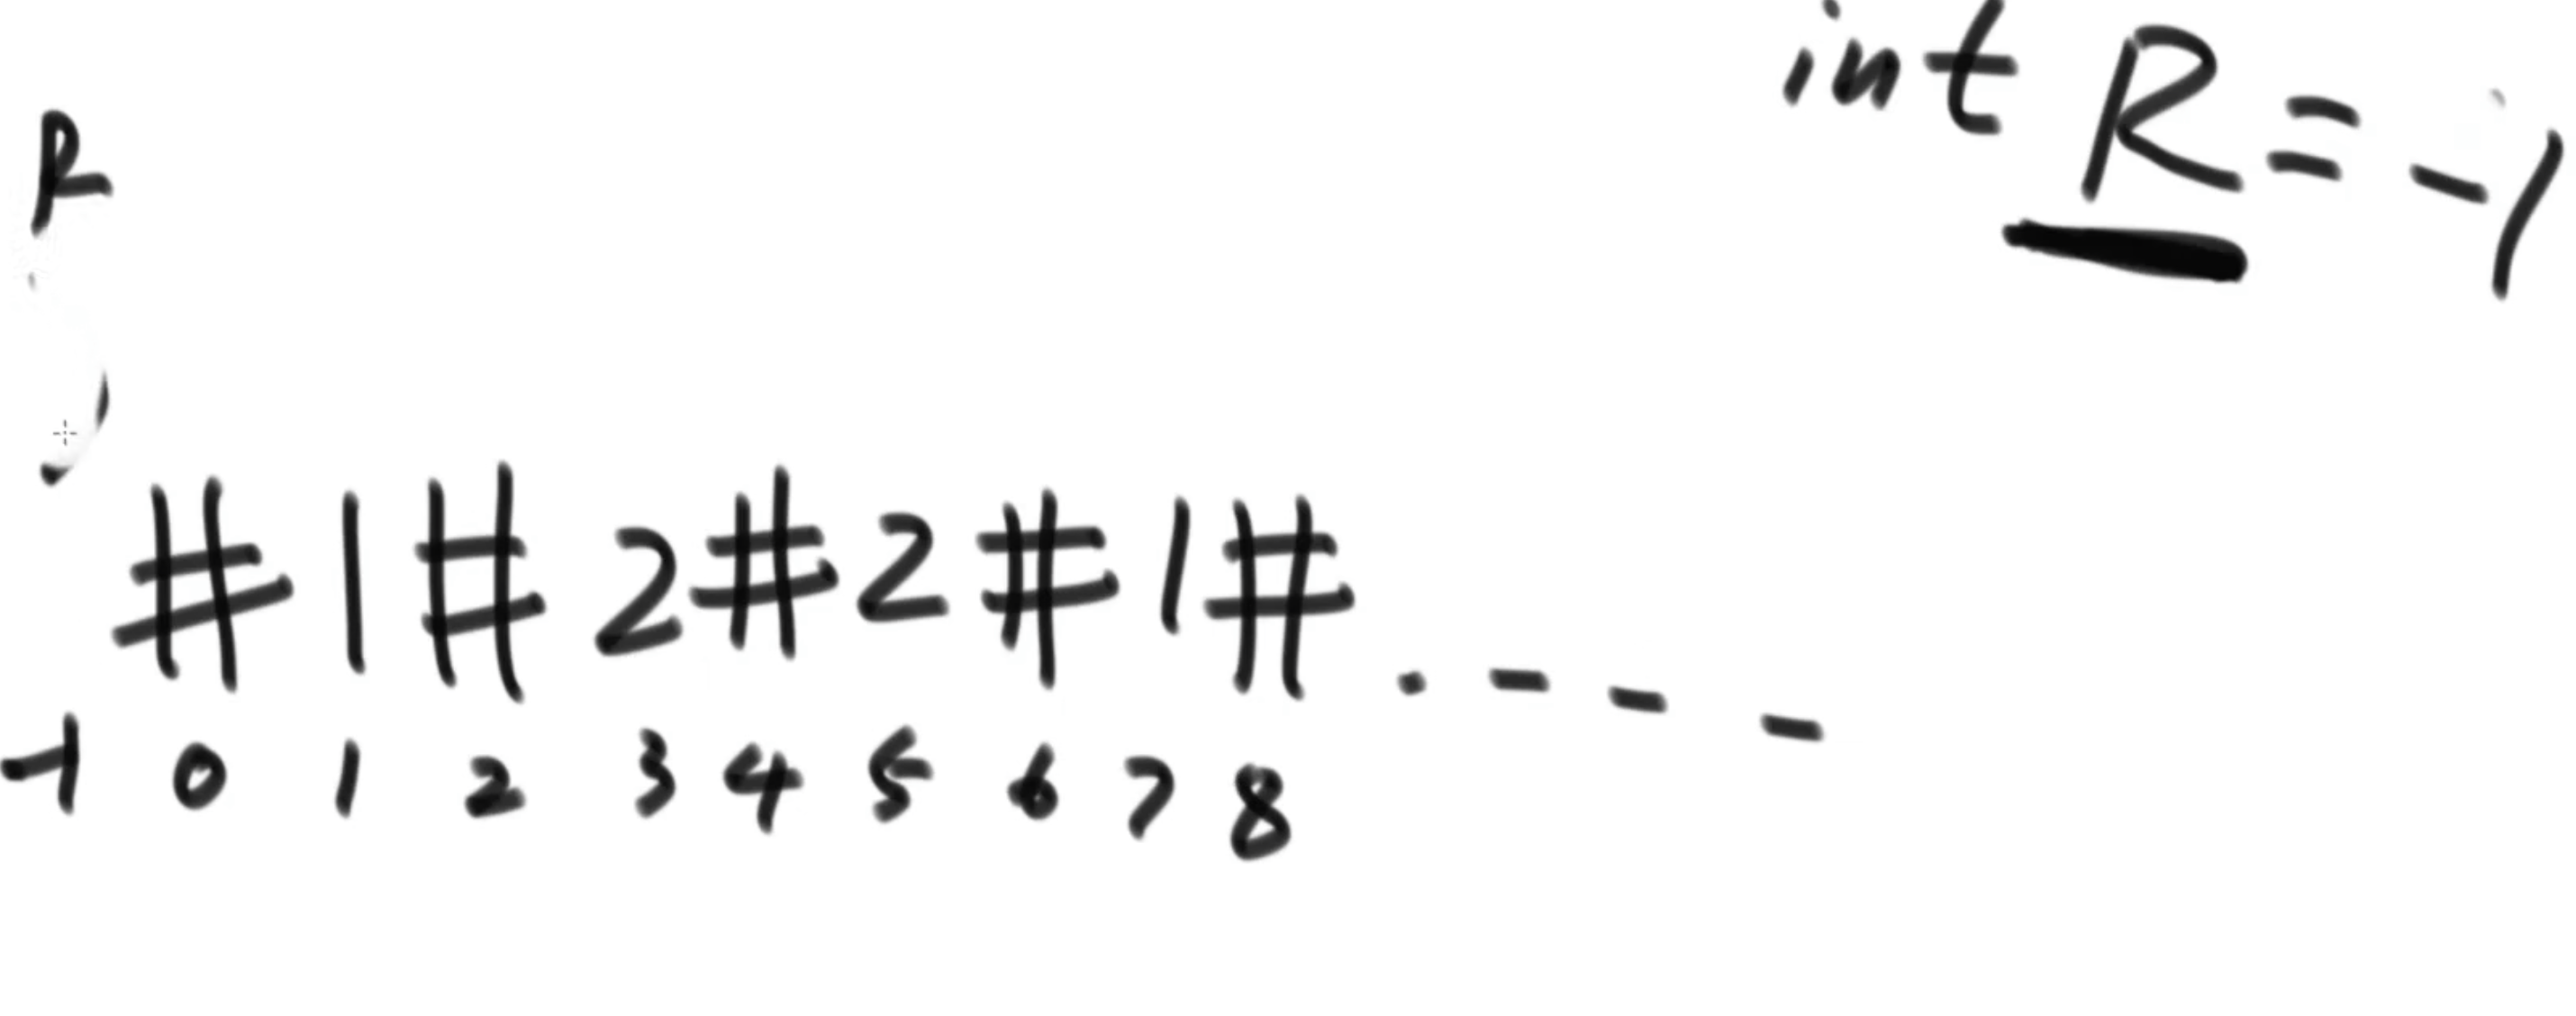 int R = -1
R
# 1 # 2 # 2 # 1 # . - - -
-1 0 1 2 3 4 5 6 7 8